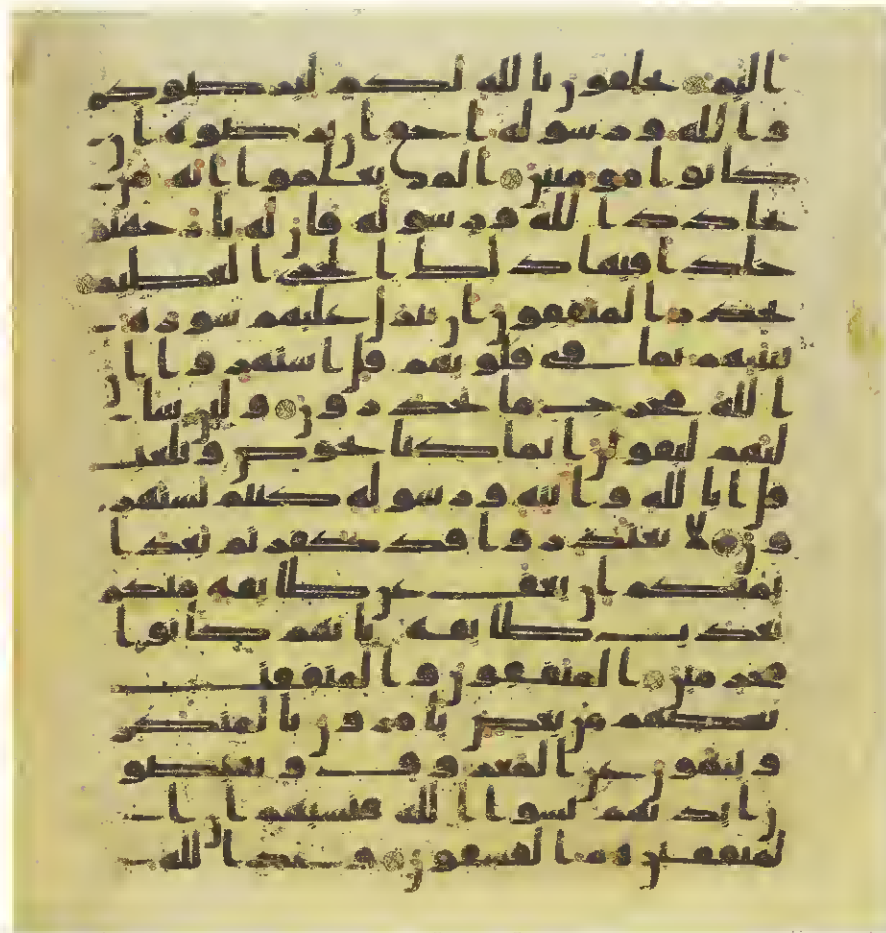 اليم يحلفون بالله لكم ليرضوكم
والله ورسوله احق ان يرضوه ان
كانوا مومنين الم يعلموا انه من
يحادد الله ورسوله فان له نار جهنم
خلدا فيها ذلك الخزي العظيم
يحذر المنفقون ان تنزل عليهم سورة
تنبئهم بما في قلوبهم قل استهزوا ان
الله مخرج ما تحذرون ولئن سا
لتهم ليقولن انما كنا نخوض ونلعب
قل ابالله وايته ورسوله كنتم تستهز
ون لا تعتذروا قد كفرتم بعد ا
يمنكم ان يعف عن طايفة منكم
نعذب طايفة بانهم كانوا
مجرمين المنفقون والمنفقت
بعضهم من بعض يامرون بالمنكر
وينهون عن المعروف ويقبضو
ن ايديهم نسوا الله فنسيهم ان ا
لمنفقين هم الفسقون وعد الله